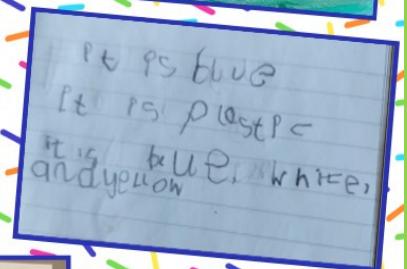 It is blue
It is plastic
it is blue, white,
and yellow